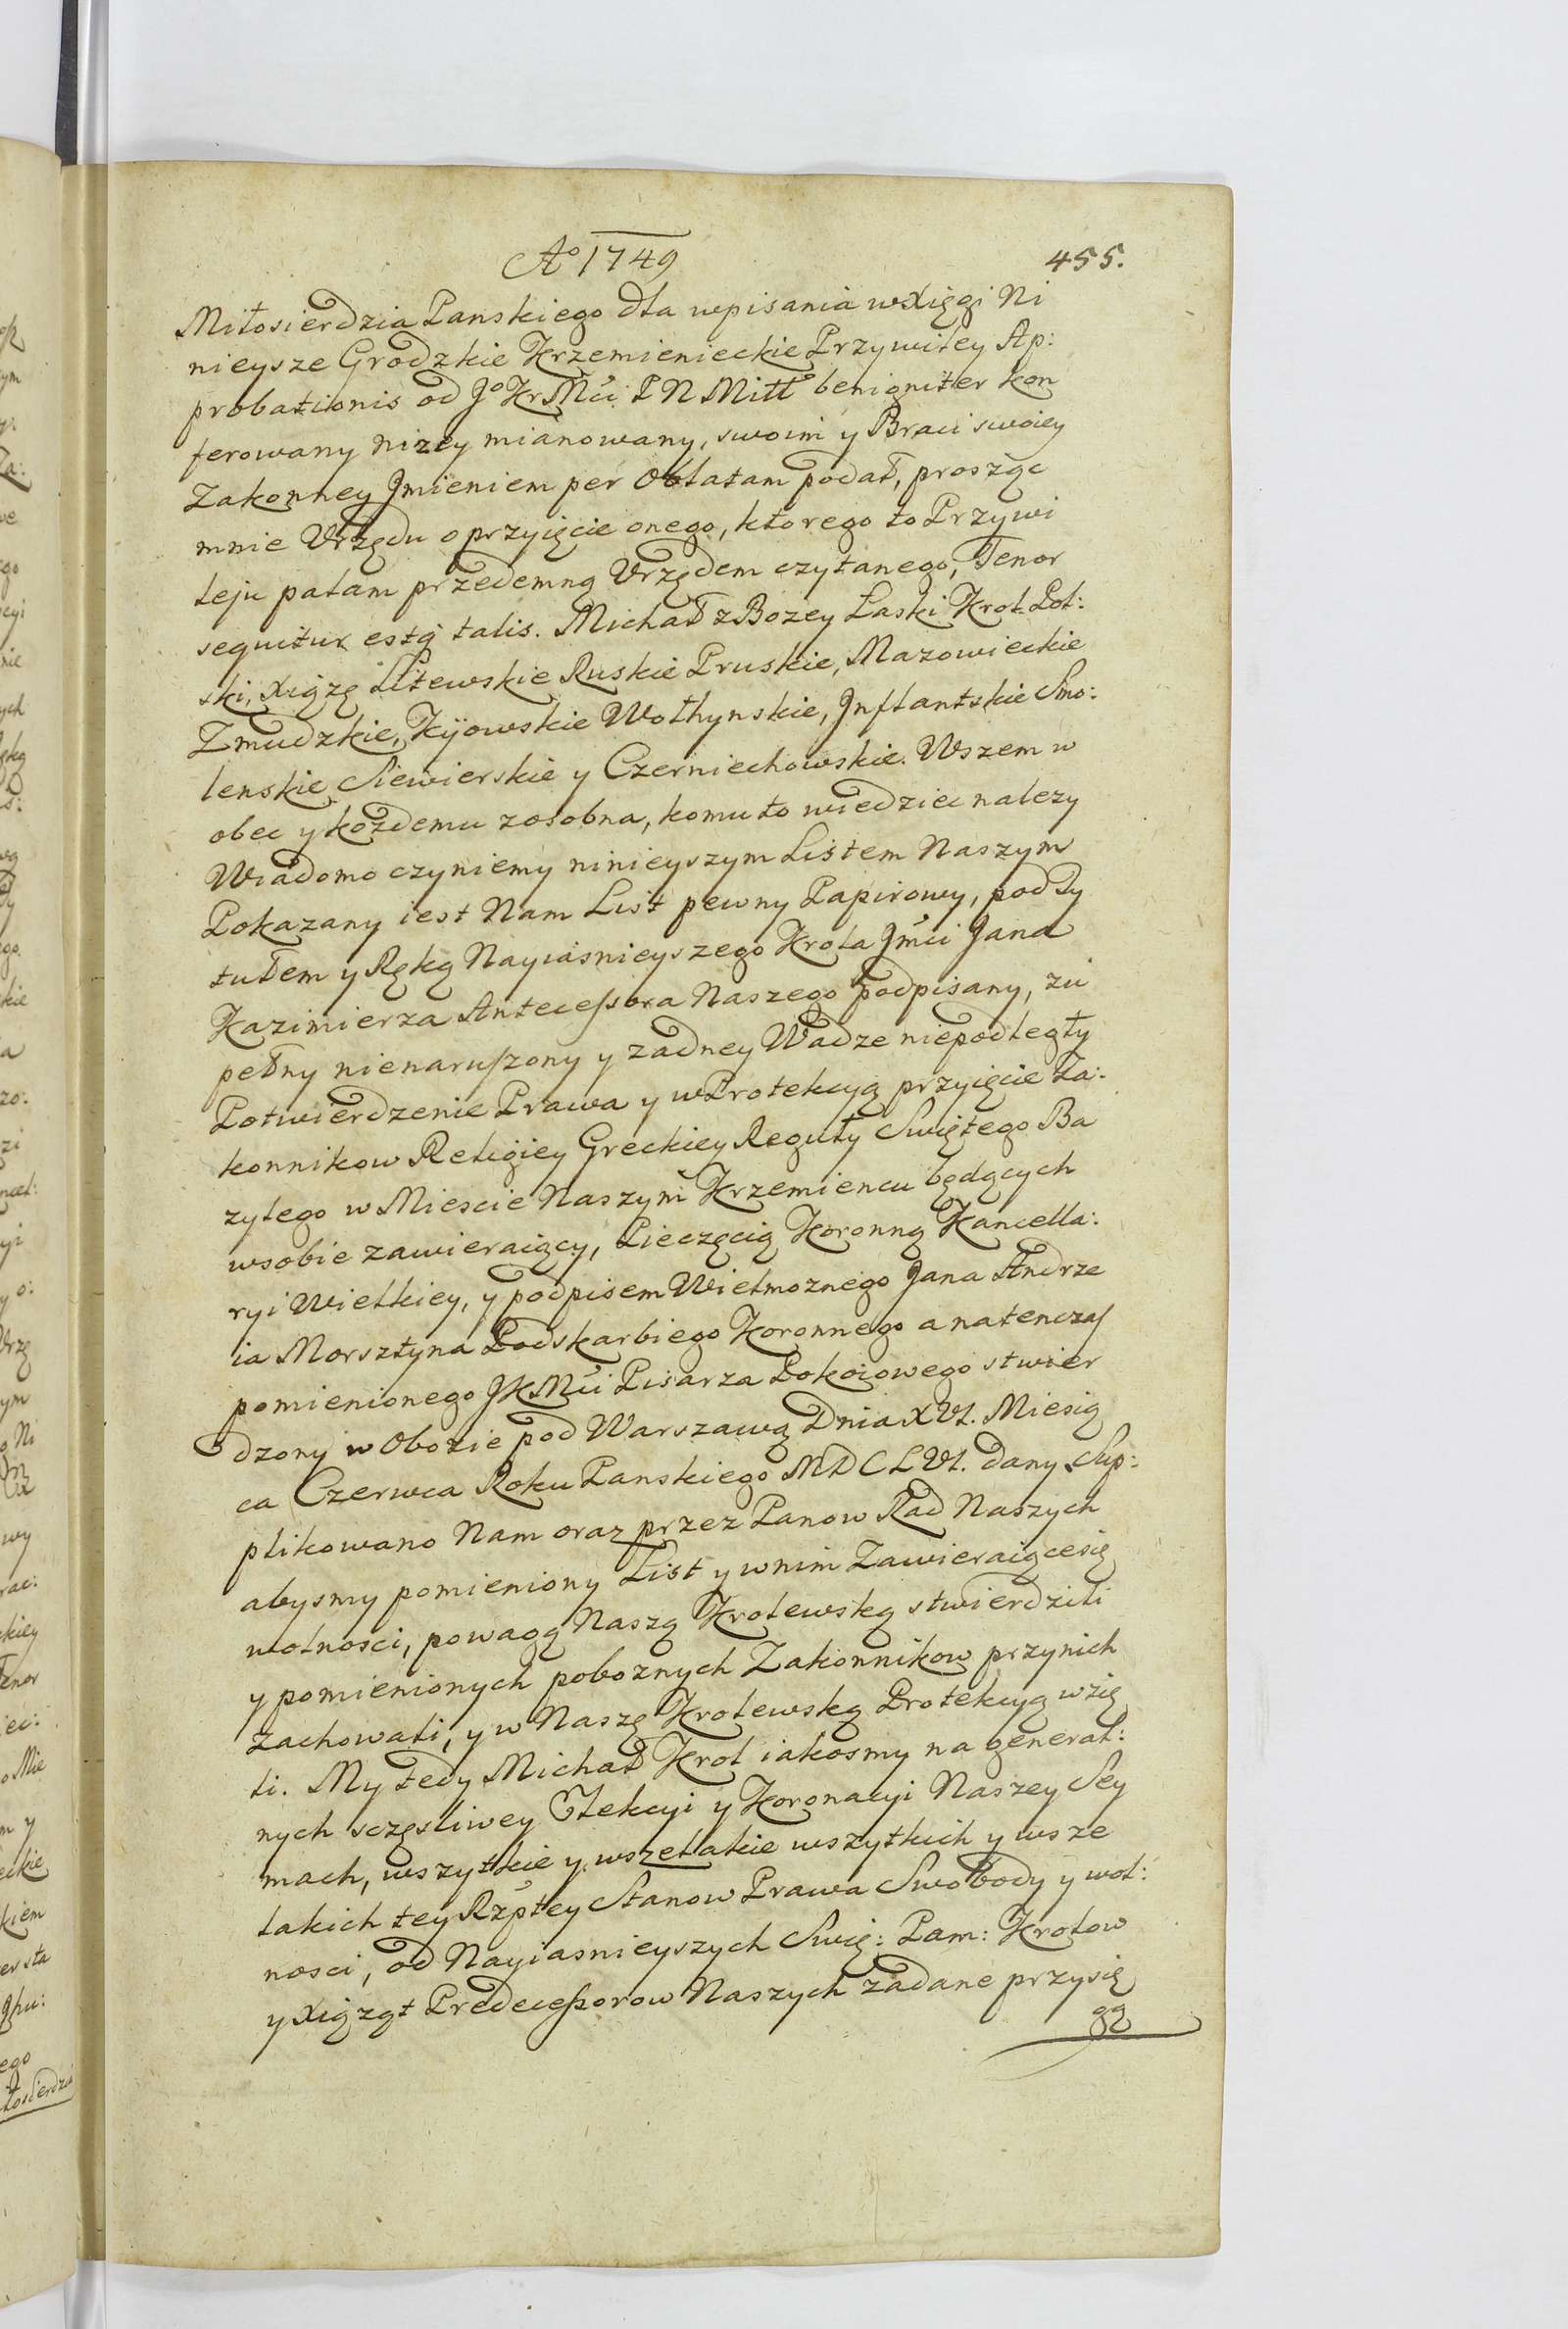 Ao 1749
455.
Miłosierdzia Panskiego dla wpisania w Xięgi Ni
nieysze Grodzkie Krzemienieckie Przywiley Ap:
probationis od Jo Kr Mći P N Miłł benigniter kon
ferowany nizey mianowany, swoim y Braci swoiey
Zakonney Jmieniem per Oblatam podał, prosząc
mnie Urzędu o przyięcie onego, ktorego to Przywi
leju palam przedemną Urzędem czytanego, Tenor
sequitur estq talis. Michał z Bozey Łaski Krol Pol:
ski, Xiąze Litewskie Ruskie Pruskie, Mazowieckie
Zmudzkie, Kijowskie Wołhynskie, Jnflantskie Smo:
lenskie Siewierskie y Czerniechowskie. Wszem w
obec y kozdemu zosobna, komu to wiedziec nalezy
Wiadomo czyniemy ninieyszym Listem Naszym
Pokazany iest Nam List pewny Papirowy, pod Ty
tułem y Ręką Nayiasnieyszego Krola Jmći Jana
Kazimierza Antecessora Naszego podpisany, zu
pełny nienaruszony y zadney Wadze niepodległy
Potwierdzenie Prawa y w Protekcyą przyięcie Za:
konnikow Religiey Greckiey Reguły Swiętego Ba
zylego w Miescie Naszym Krzemiencu będących
wsobie zawieraiący, Pieczęcią Koronną Kancella:
ryi Wielkiey, y podpisem Wielmoznego Jana Andrze
ia Morsztyna Podskarbiego Koronnego a natenczas
pomienionego JKMći Pisarza Pokoiowego stwier
dzony w Obozie pod Warszawą Dnia XVI. Miesią
ca Czerwca Roku Panskiego MDCLVI. dany. Sup:
plikowano Nam oraz przez Panow Rad Naszych
abysmy pomieniony List y wnim Zawieraiącesię
wolnosci, powagą Naszą Krolewską stwierdzili
y pomienionych poboznych Zakonnikow przynich
zachowali, y w Naszą Krolewską Protekcyą wzię
li. My tedy Michał Krol iakosmy na general:
nych sczęsliwey Elekcyi y Koronacyi Naszey Sey
mach, wszytkie y wszelakie wszytkich y wsze
lakich tey Rzptey Stanow Prawa Swobody y wol:
nosci, od Nayiasnieyszych Swię: Pam: Krolow
y Xiążąt Predecessorow Naszych zadane przysię
gą